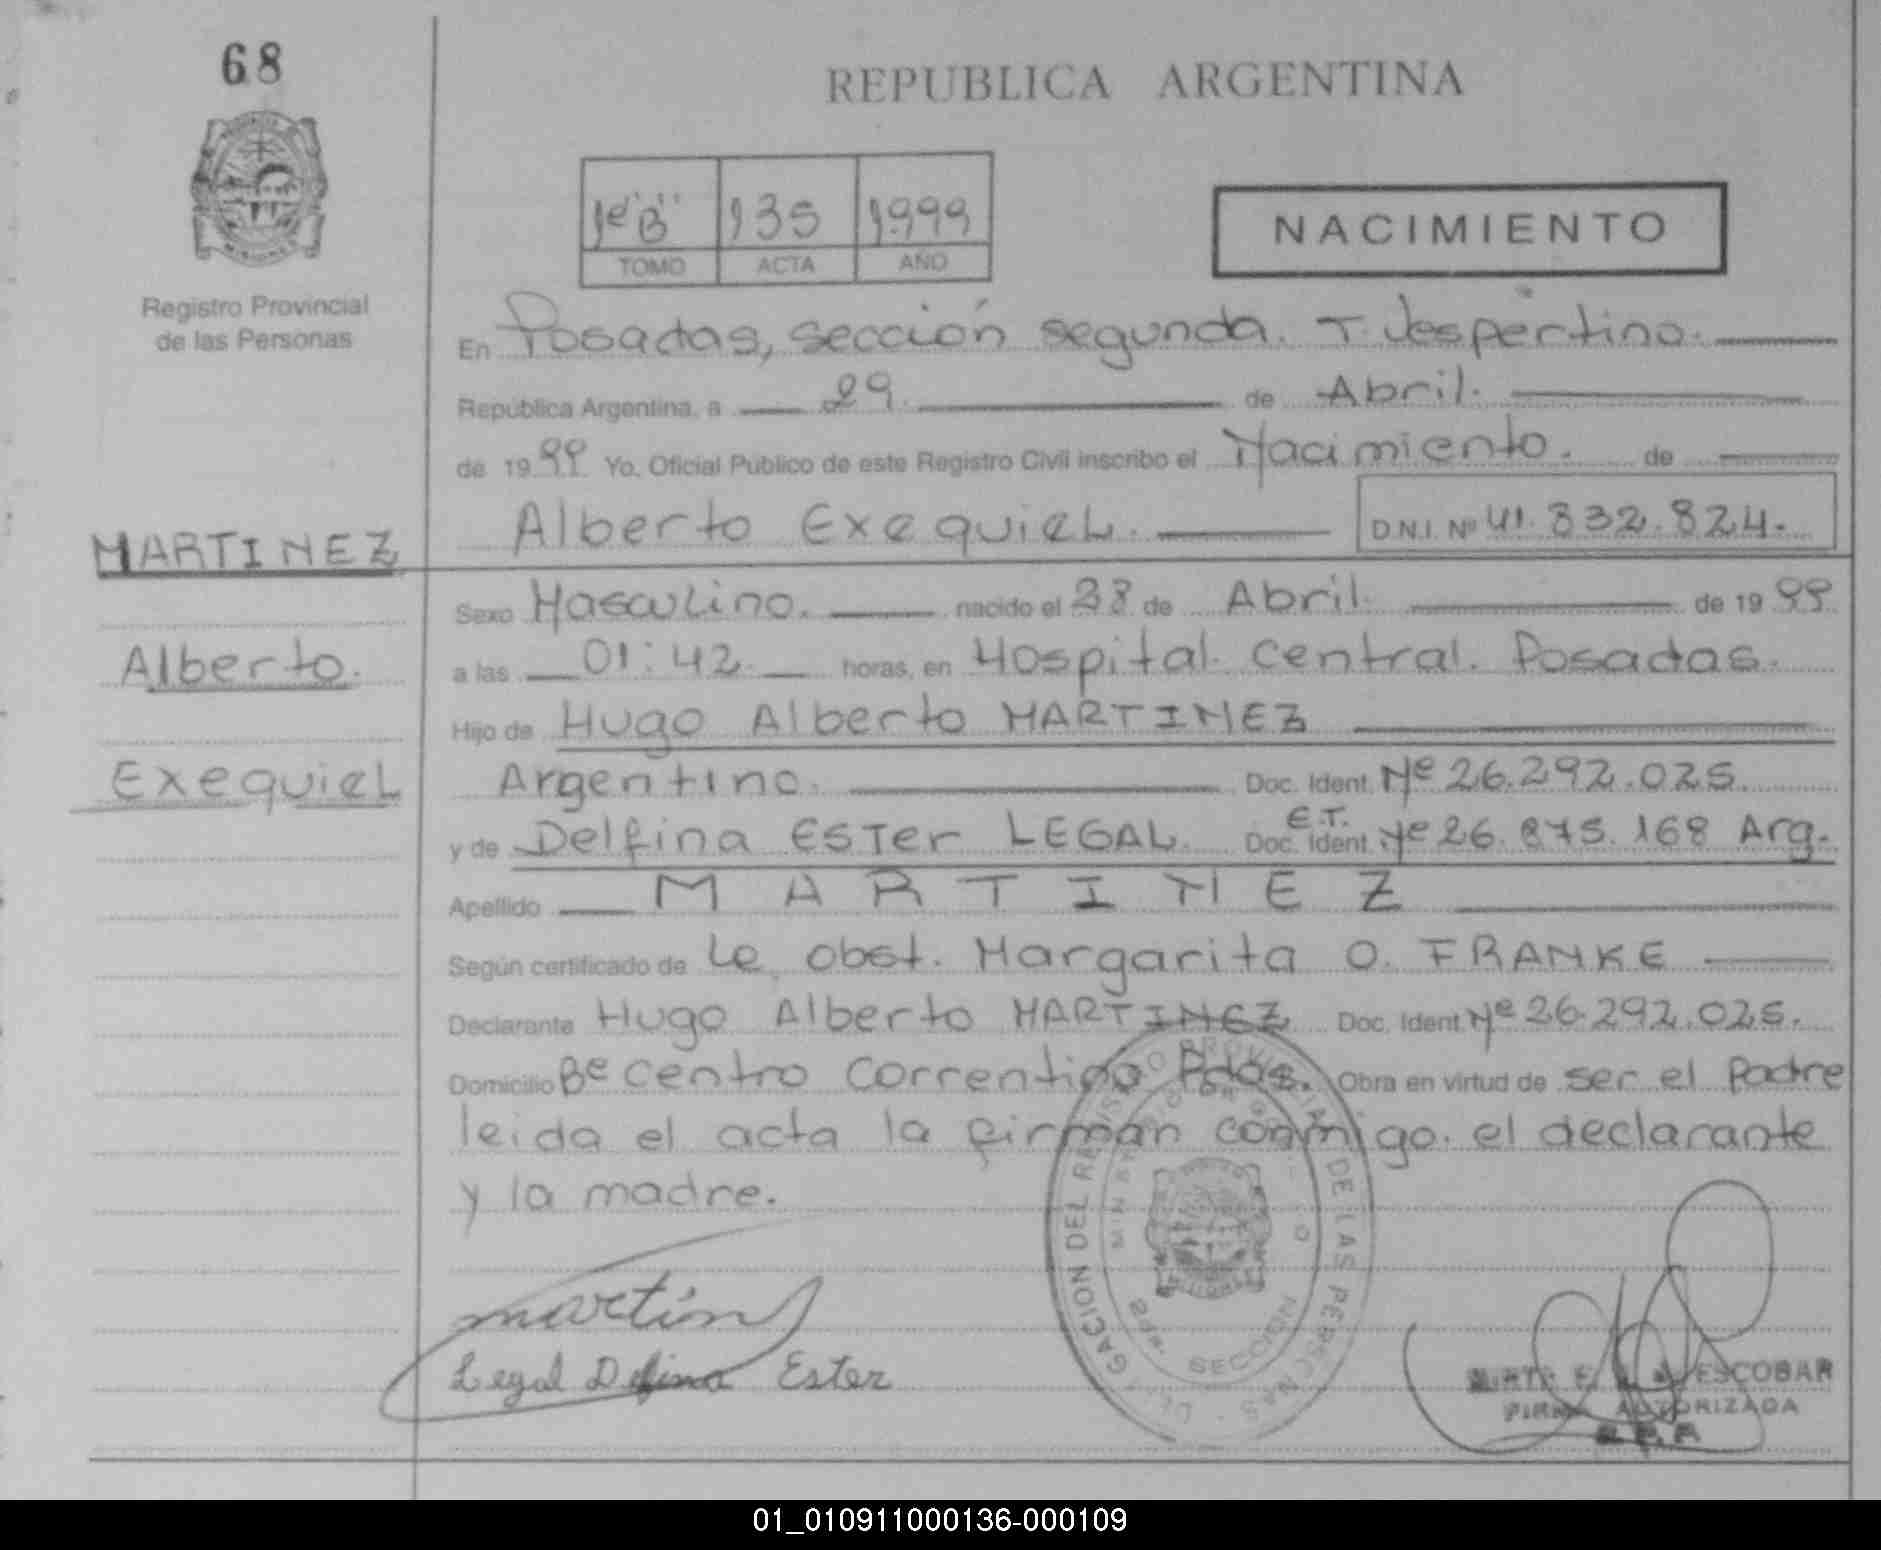 68
REPUBLICA ARGENTINA
1º "B" 135 1999
TOMO ACTA AÑO
NACIMIENTO
Registro Provincial
de las Personas
En Posadas, sección segunda. T. Vespertino.
República Argentina, a 29. de Abril.
de 1999 Yo, Oficial Público de este Registro Civil inscribo el Nacimiento. de
Alberto Exequiel. D.N.I. Nº 41.832.824.
MARTINEZ
Alberto.
Exequiel
Sexo Masculino. nacido el 28 de Abril. de 1999
a las 01:42. horas, en Hospital Central. Posadas.
Hijo de Hugo Alberto MARTINEZ
Argentino. Doc. Ident. Nº 26.292.025.
E.T.
y de Delfina ESTer LEGAL. Doc. Ident. Nº 26.875.168 Arg.
Apellido MARTINEZ
Según certificado de Le obst. Margarita O. FRANKE
Declarante Hugo Alberto MARTINEZ Doc. Ident. Nº 26.292.025.
Domicilio Bº Centro Correntino Pdas. Obra en virtud de ser el Padre
leida el acta la firman conmigo. el declarante
y la madre.
DELEGACION DEL REGISTRO PROVINCIAL DE LAS PERSONAS
martin
Legal Delfina Ester
ESCOBAR
FIRMA AUTORIZADA
01_010911000136-000109